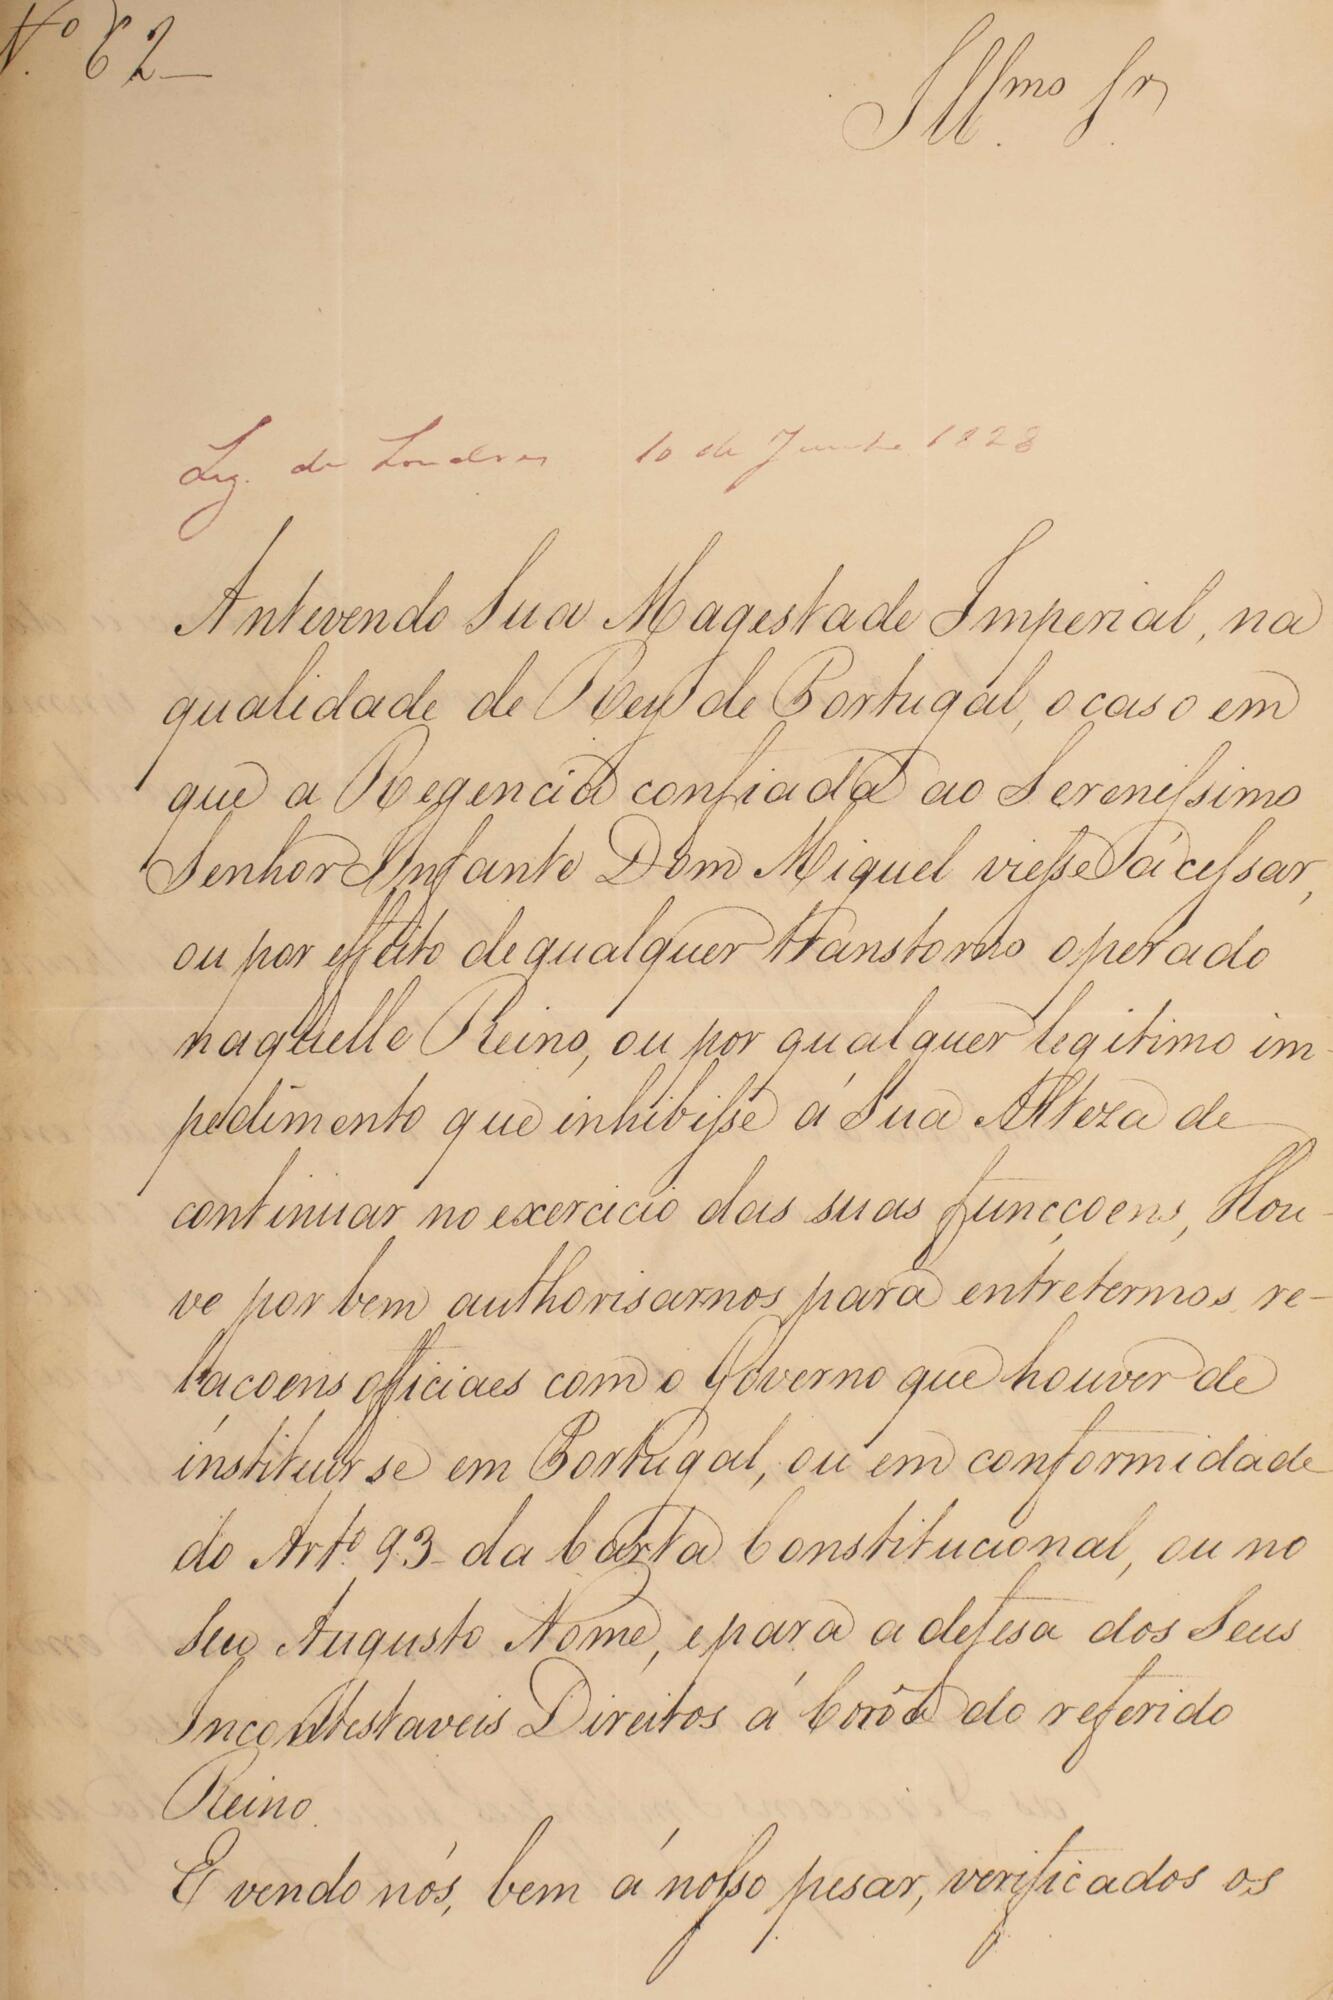 Nº 62
Illmo Sr
Leg. de Londres 10 de Junho 1828
Antevendo Sua Magestade Imperial, na
qualidade de Rey de Portugal, o caso em
que a Regencia confiada ao Serenissimo
Senhor Infante Dom Miguel viesse á cessar,
ou por effeito de qualquer transtorno operado
naquelle Reino, ou por qualquer legitimo im-
pedimento que inhibisse á Sua Alteza de
continuar no exercicio das suas funcçoens, Hou-
ve por bem authorisarnos para entretermos re-
laçoens officiaes com o Governo que houver de
instituir se em Portugal, ou em conformidade
do Artº 93 da Carta Constitucional, ou no
Seu Augusto Nome, e para a defesa dos Seus
Incontestaveis Direitos á Corôa do referido
Reino.
E vendo nós, bem á nosso pesar, verificados os